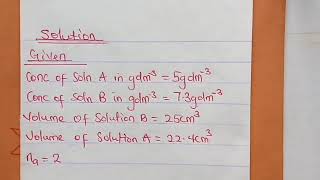 Solution
Given
Conc of Soln A in gdm⁻³ = 5gdm⁻³
Conc of Soln B in gdm⁻³ = 7.3gdm⁻³
Volume of Solution B = 25cm³
Volume of Solution A = 22.4cm³
na = 2